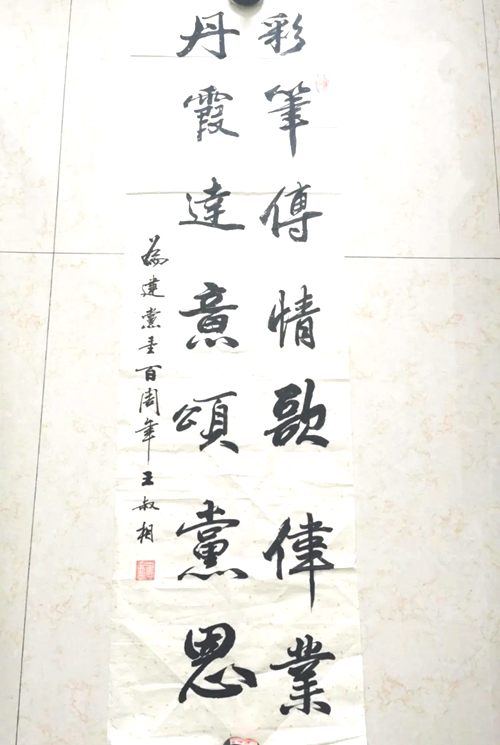 彩筆傳情歌偉業
丹霞達意頌黨恩
為建黨百周年王叔相